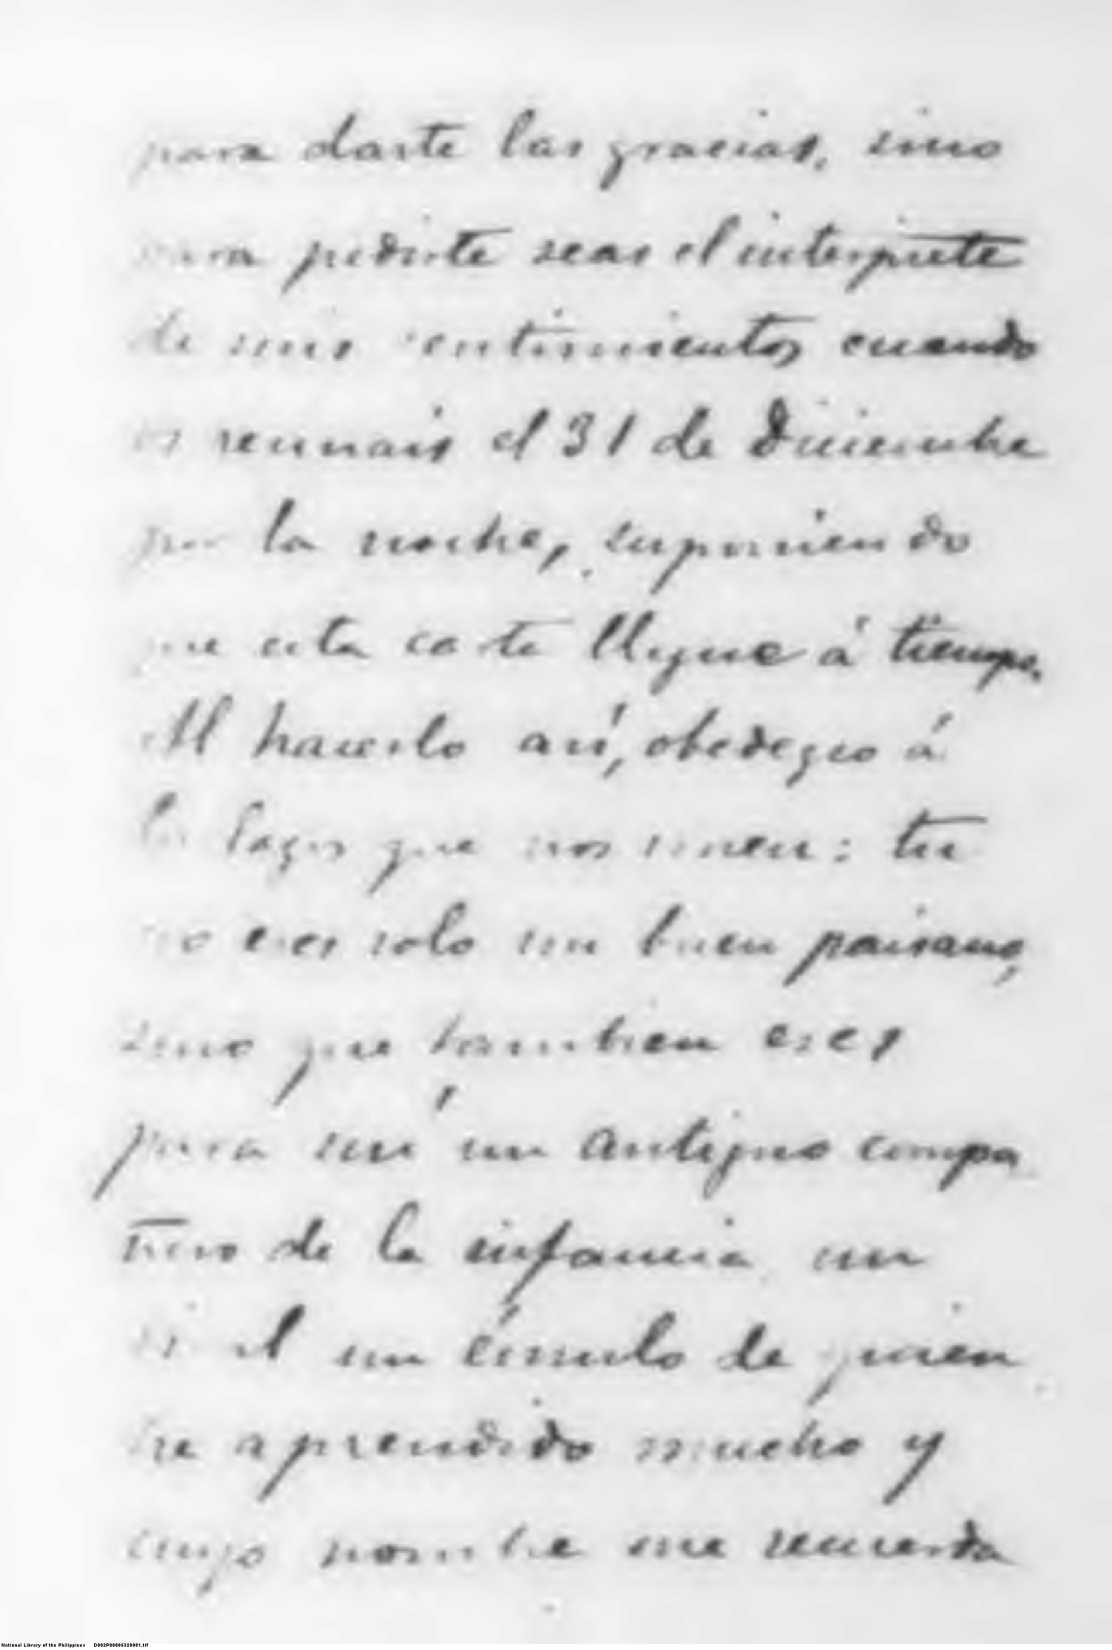 para darte las gracias, sino
para pedirte seas el interprete
de mis sentimientos cuando
os reunais el 31 de Diciembre
por la noche, suponiendo
que esta carta llegue á tiempo.
Al hacerlo así, obedezco á
los lazos que nos unen: tu
no eres solo un buen paisano,
sino que tambien eres
para mí un antiguo compa
ñero de la infancia un
rival un émulo de quien
he aprendido mucho y
cuyo nombre me recuerda
National Library of the Philippines